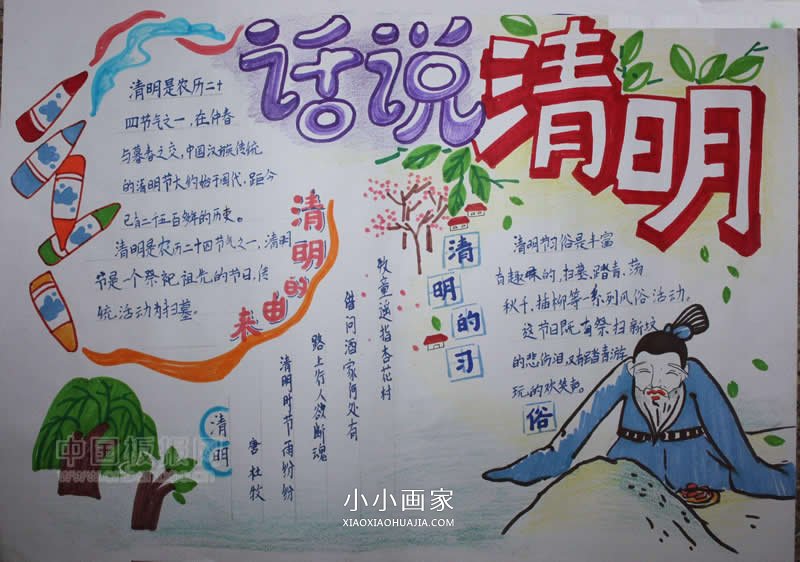 话说清明
清明是农历二十
四节气之一，在仲春
与暮春之交，中国汉族传统
的清明节大约始于周代，距今
已有二千五百多年的历史。
清明是农历二十四节气之一，清明
节是一个祭祀祖先的节日，传
统活动为扫墓。
清明的由来
清明的习俗
清明节习俗是丰富
有趣味的，扫墓、踏青、荡
秋千、插柳等一系列风俗活动。
这节日既有祭扫新坟
的悲伤泪，又有踏青游
玩的欢笑声。
清明
唐 杜牧
清明时节雨纷纷
路上行人欲断魂
借问酒家何处有
牧童遥指杏花村
小小画家
XIAOXIAOHUAJIA.COM